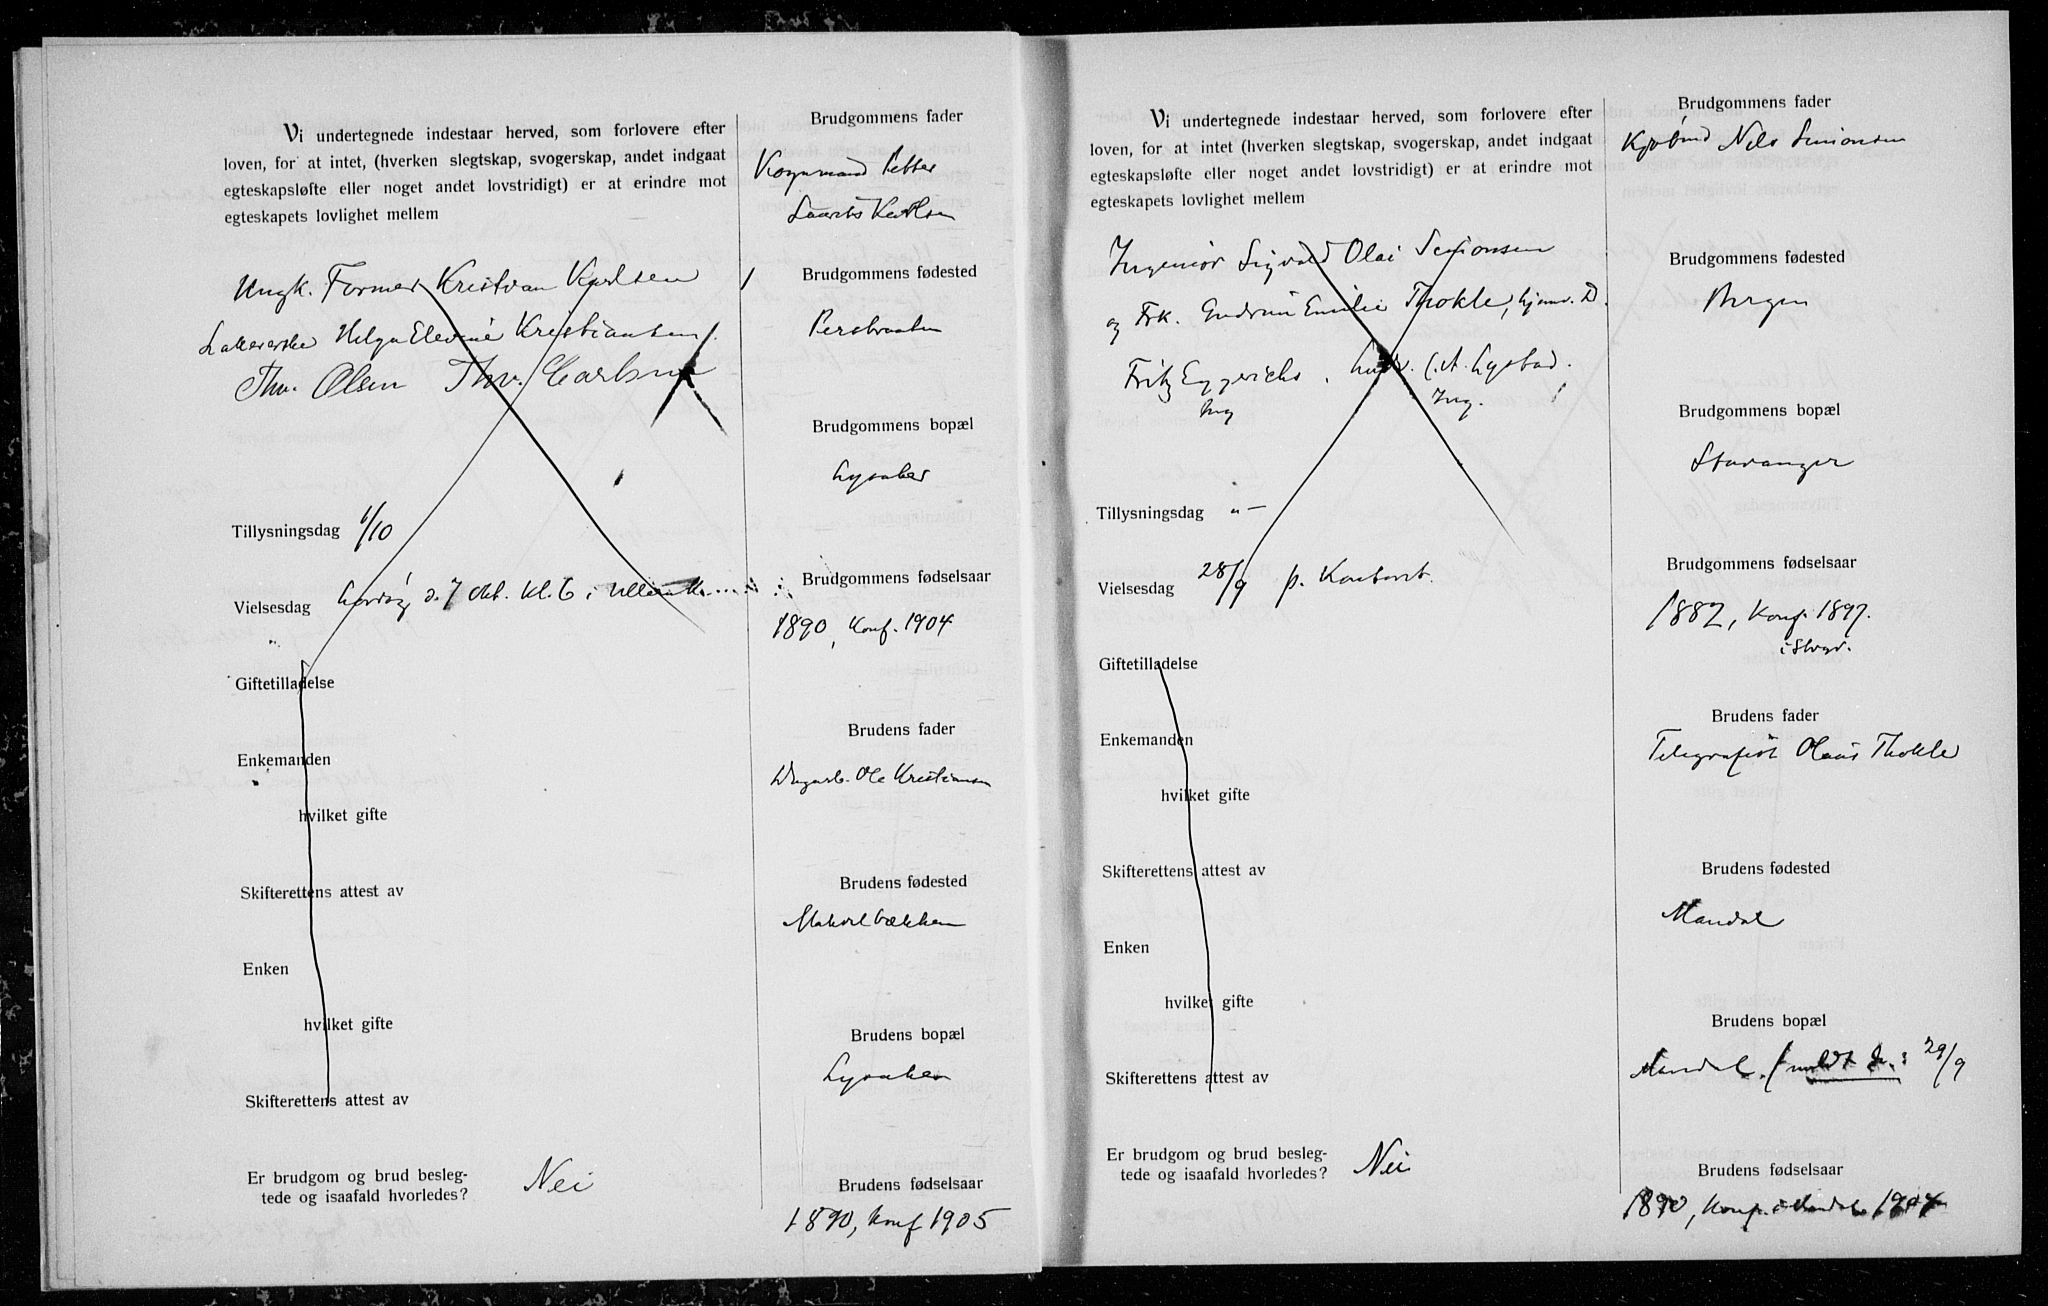 Vi undertegnede indestaar herved, som forlovere efter
loven, for at intet, (hverken slegtskap, svogerskap, andet indgaat
egteskapsløfte eller noget andet lovstridigt) er at erindre mot
egteskapets lovlighet mellem
Ungk. Former Kristian Karlsen
Helga Elevine Kristiansen
Thv. Olsen Thv. Carlsen
Tillysningsdag 1/10
Vielsesdag Lørdag d. 7 okt. kl. 6 i
Giftetilladelse
Enkemanden
hvilket gifte
Skifterettens attest av
Enken
hvilket gifte
Skifterettens attest av
Er brudgom og brud besleg-
tede og isaafald hvorledes? Nei
Brudgommens fader
Petter
Laurits Karlsen
Brudgommens fødested
Persbraaten
Brudgommens bopæl
Lysaker
Brudgommens fødselsaar
1890, konf. 1904
Brudens fader
Ole Kristiansen
Brudens fødested
Makrelbækken
Brudens bopæl
Lysaker
Brudens fødselsaar
1890, konf 1905
Vi undertegnede indestaar herved, som forlovere efter
loven, for at intet, (hverken slegtskap, svogerskap, andet indgaat
egteskapsløfte eller noget andet lovstridigt) er at erindre mot
egteskapets lovlighet mellem
Ingeniør Sigvald Olai Simonsen
og Frk. Gudrun Emilie Thokle, hjemv. D.
Fritz Eggerichs
Ing Ing.
Tillysningsdag " —
Vielsesdag 28/9 p. Kontoret.
Giftetilladelse
Enkemanden
hvilket gifte
Skifterettens attest av
Enken
hvilket gifte
Skifterettens attest av
Er brudgom og brud besleg-
tede og isaafald hvorledes? Nei
Brudgommens fader
Kjøbmd Nils Simonsen
Brudgommens fødested
Bergen
Brudgommens bopæl
Stavanger
Brudgommens fødselsaar
1882, konf. 1897.
Brudens fader
Telegrafist Olaus Thokle
Brudens fødested
Mandal
Brudens bopæl
Mandal. 29/9
Brudens fødselsaar
1890, konf. i Mandal 1904